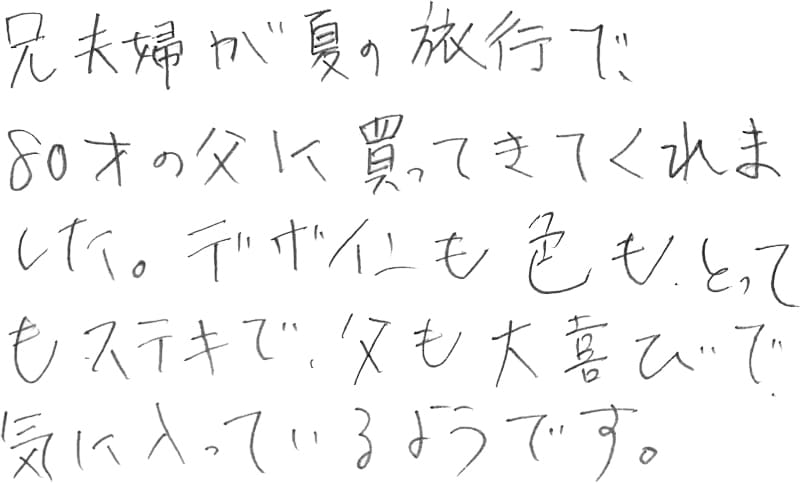 兄夫婦が夏の旅行で、
80才の父に買ってきてくれま
した。デザインも色も、とって
もステキで、父も大喜びで
気に入っているようです。